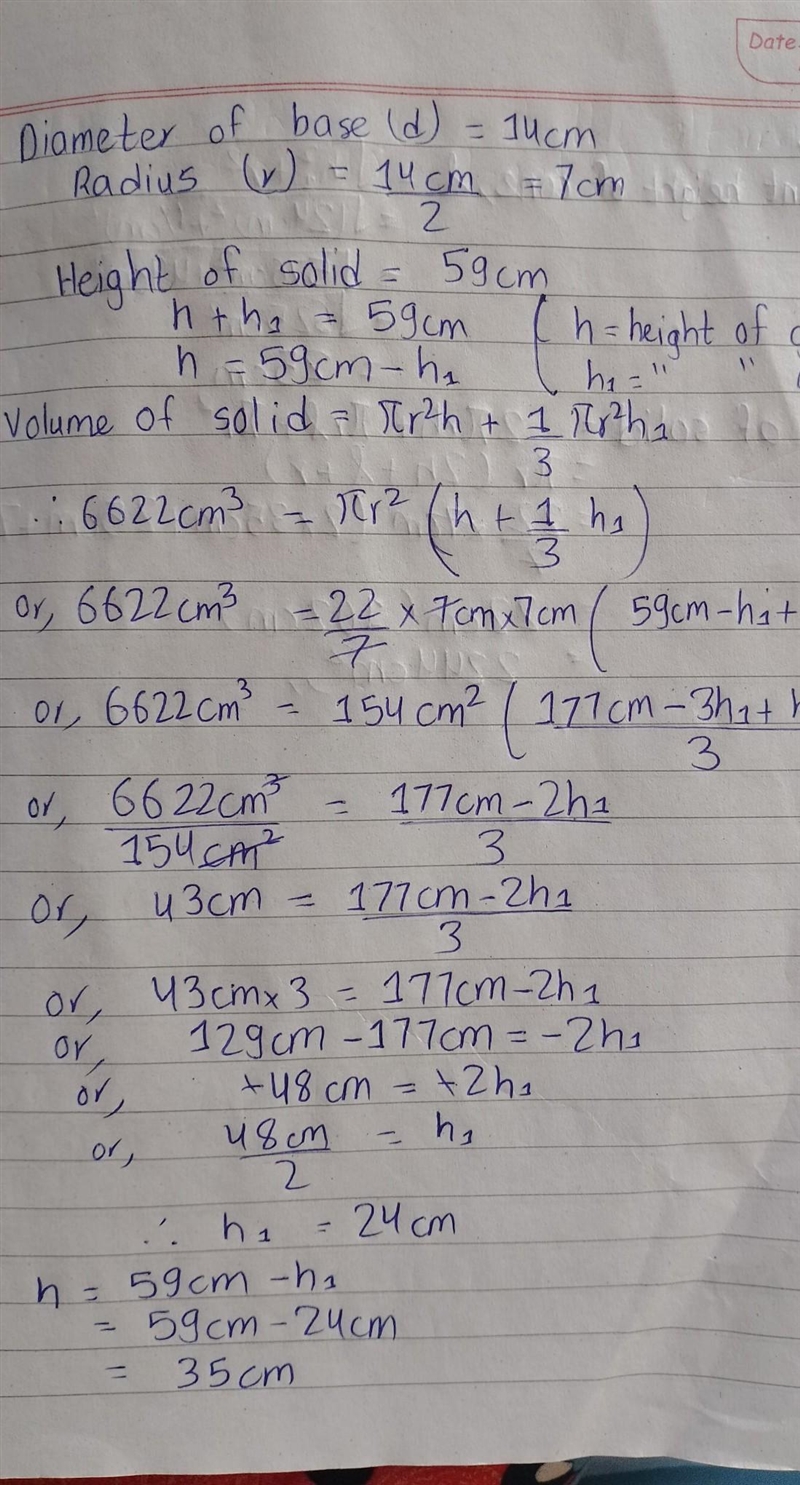 Date
Diameter of base (d) = 14cm
Radius (r) = 14cm/2 = 7cm
Height of solid = 59cm
h + h1 = 59cm ( h = height of
h = 59cm - h1 h1 = " "
Volume of solid = πr²h + 1/3 πr²h1
∴ 6622cm³ = πr² (h + 1/3 h1)
or, 6622cm³ = 22/7 × 7cm×7cm ( 59cm - h1 +
or, 6622cm³ = 154cm² ( 177cm - 3h1 + h/3
or, 6622cm³/154cm² = 177cm - 2h1/3
or, 43cm = 177cm - 2h1/3
or, 43cm×3 = 177cm - 2h1
or, 129cm - 177cm = -2h1
or, +48cm = +2h1
or, 48cm/2 = h1
∴ h1 = 24cm
h = 59cm - h1
= 59cm - 24cm
= 35cm